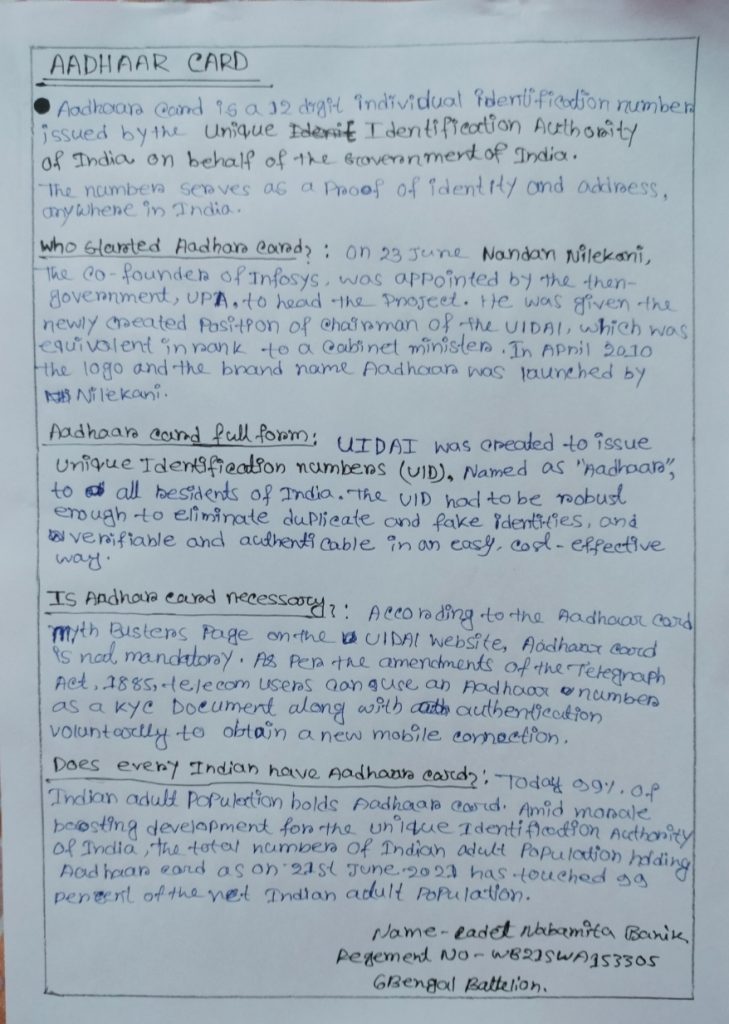 AADHAAR CARD
● Aadhaar card is a 12 digit individual identification number
issued by the Unique Identification Authority
of India on behalf of the Government of India.
The number serves as a proof of identity and address,
anywhere in India.
Who Started Aadhar card? : On 23 June Nandan Nilekani,
The co-founder of Infosys, was appointed by the then-
government, UPA, to head the project. He was given the
newly created position of chairman of the UIDAI, which was
equivalent in rank to a cabinet minister. In April 2010
the logo and the brand name Aadhaar was launched by
Nilekani.
Aadhaar card full form: UIDAI was created to issue
Unique Identification numbers (UID), Named as "Aadhaar",
to all besidents of India. The UID had to be robust
enough to eliminate duplicate and fake identities, and
verifiable and authenticable in an easy, cost-effective
way.
Is Aadhar card necessary? : According to the Aadhaar card
Myth Busters Page on the UIDAI website, Aadhaar card
is not mandatory. As per the amendments of the Telegraph
Act, 1885, telecom users can use an Aadhaar number
as a KYC Document along with authentication
voluntarily to obtain a new mobile connection.
Does every Indian have Aadhaar card? : Today 99% of
Indian adult population holds Aadhaar card. Amid morale
boosting development for the Unique Identification Authority
of India, the total number of Indian adult population holding
Aadhaar card as on 21st June 2021 has touched 99
percent of the net Indian adult population.
Name - cadet Nabamita Banik
Regement No - WB21SWA153305
6Bengal Battelion.